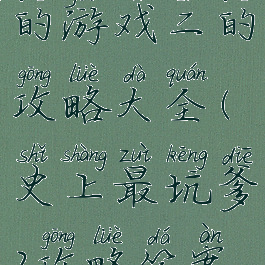 的游戏二的
gōng lüè dà quán
攻略大全(
shǐ shàng zuì kēng diē
史上最坑爹
gōng lüè dá àn
攻略答案